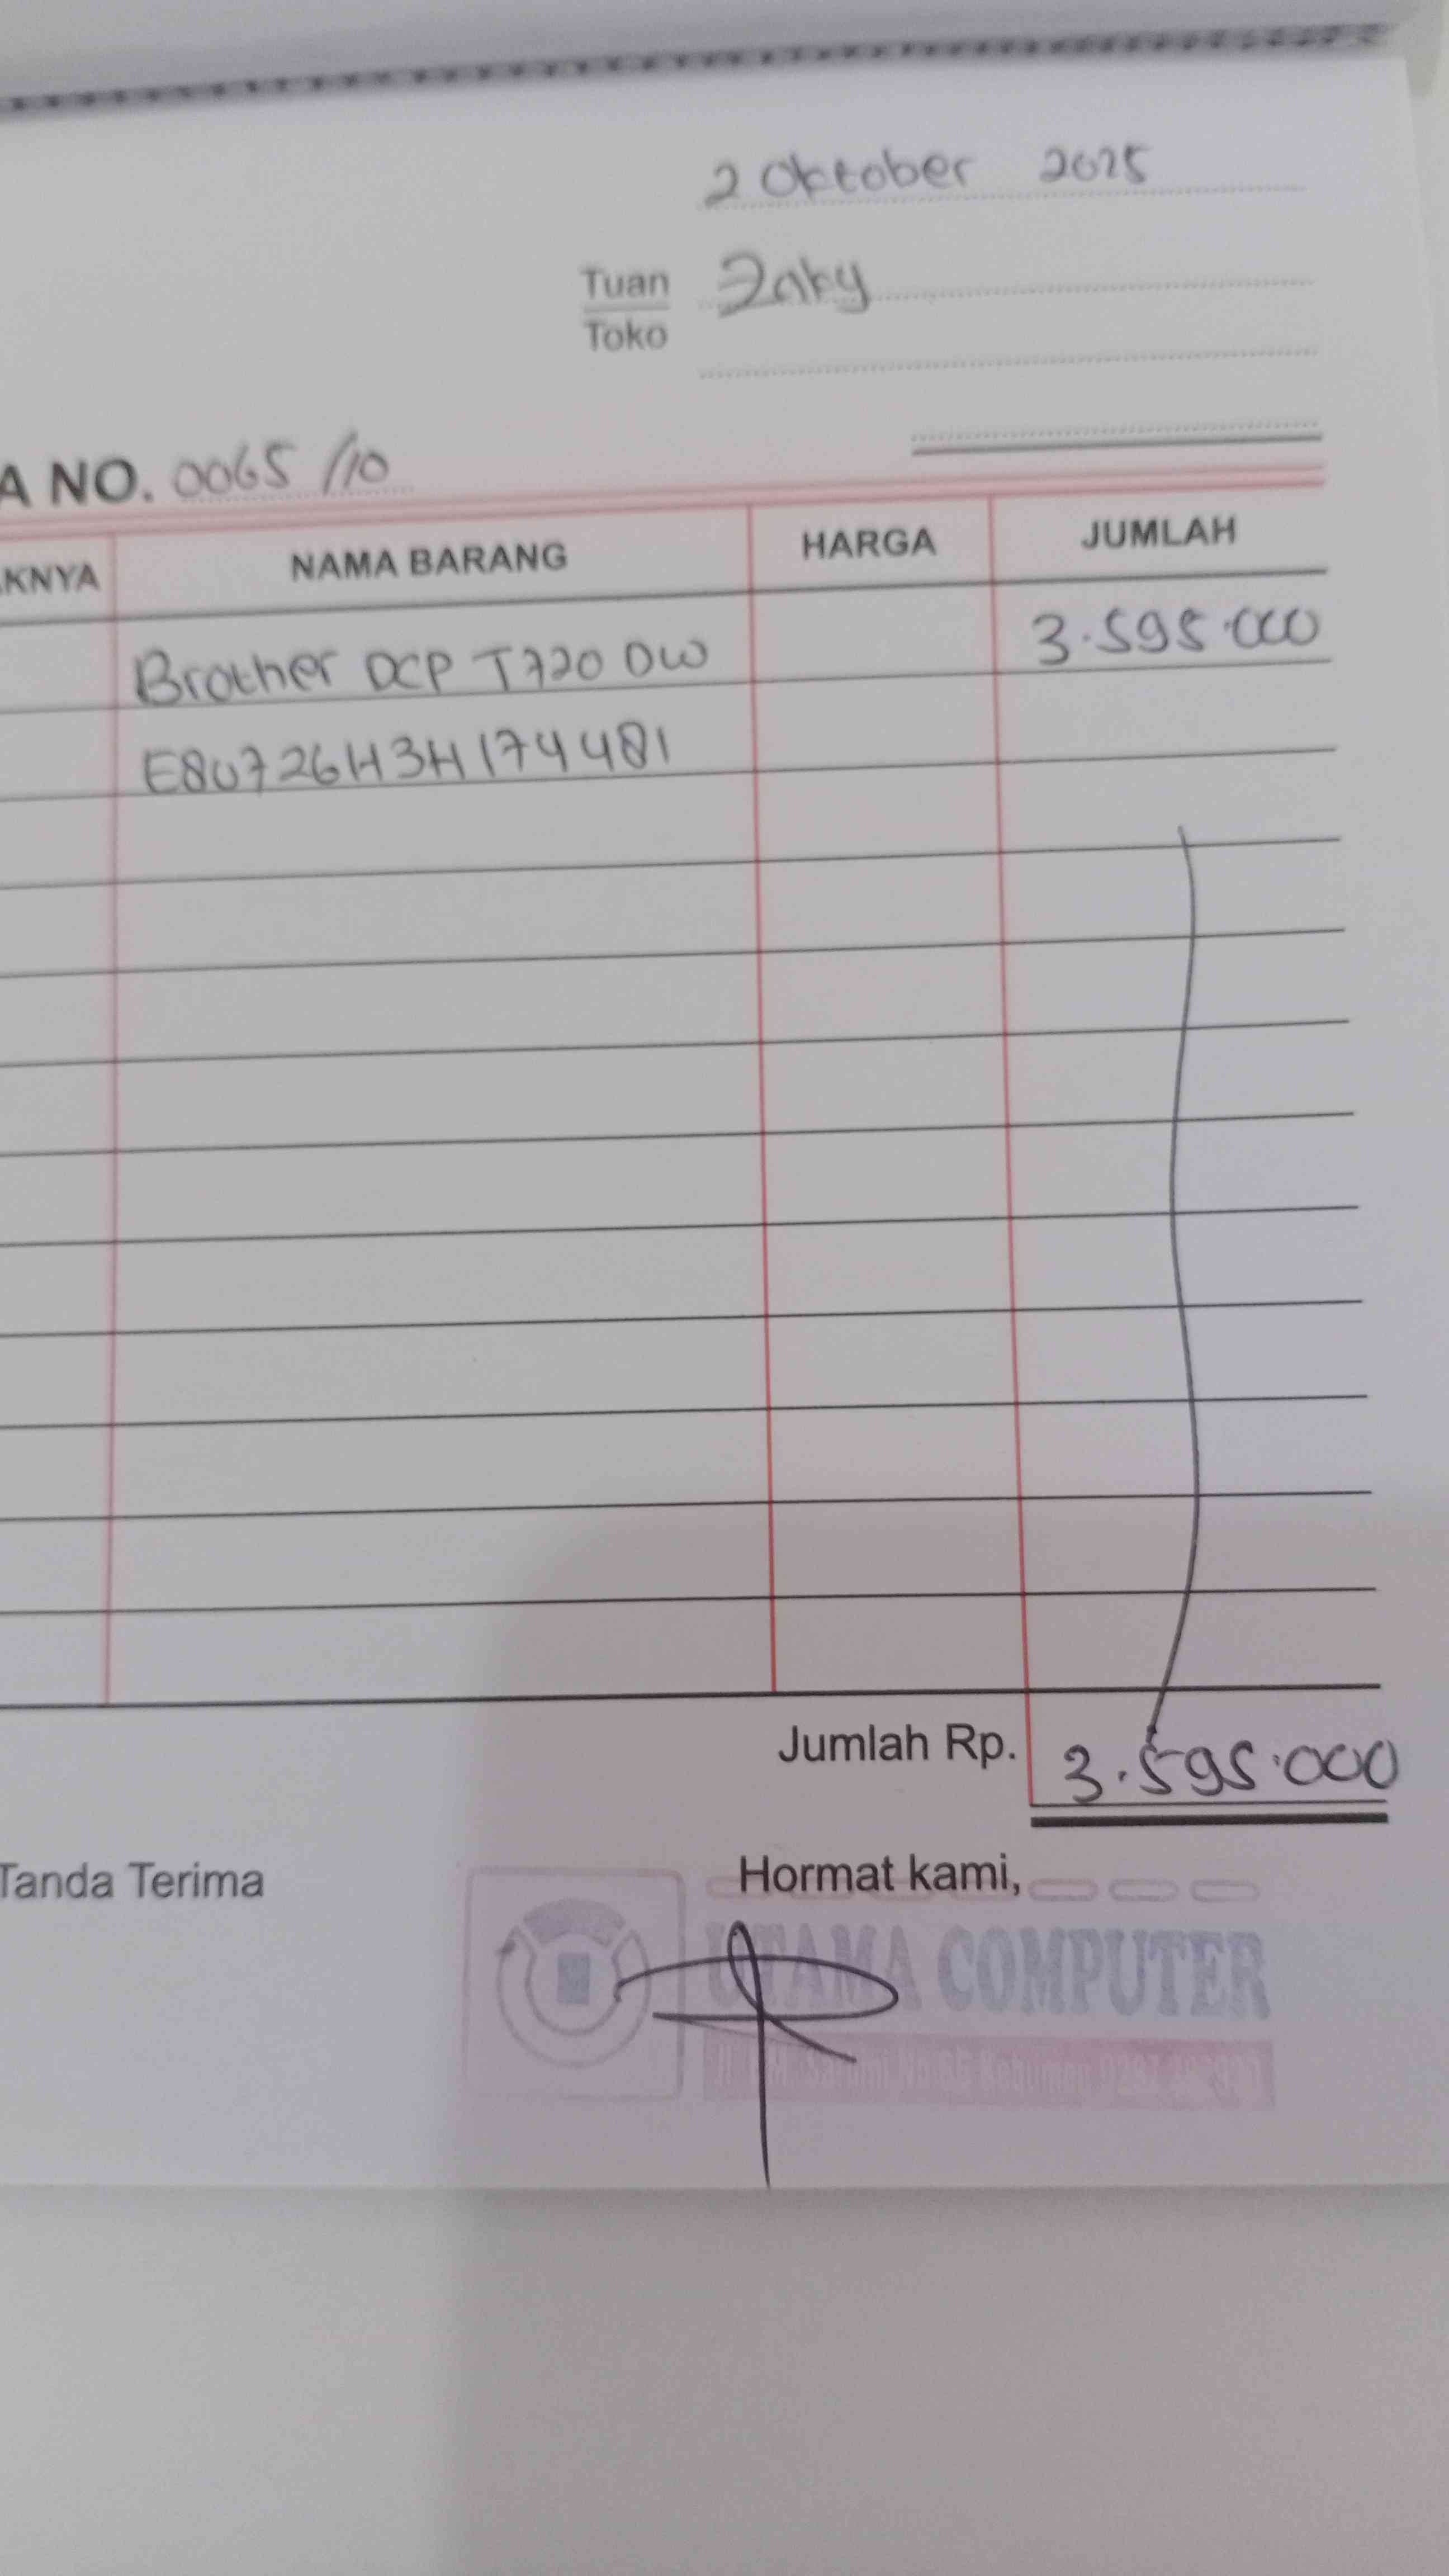 2 Oktober 2025
Tuan Zaky
Toko
A NO. 0065 /10
AKNYA NAMA BARANG HARGA JUMLAH
Brother DCP T720 DW 3.595.000
E80726H3H174481
Jumlah Rp. 3.595.000
Tanda Terima Hormat kami,
UTAMA COMPUTER
Kebumen